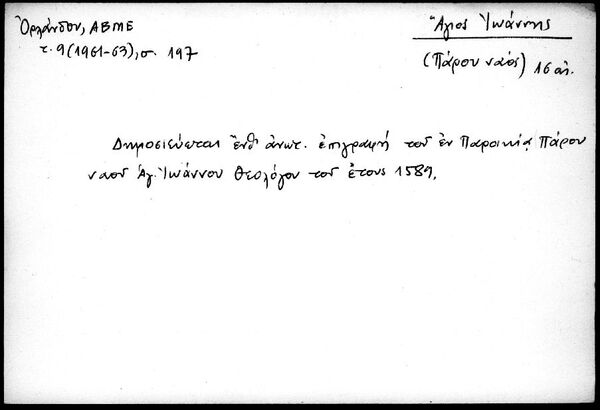 Ὀρλάνδου, ΑΒΜΕ
τ. 9 (1961-63), σ. 197
Ἅγιος Ἰωάννης
(Πάρου ναός) 16 αἰ.
Δημοσιεύεται ἔνθ' ἀνωτ. ἐπιγραφή τοῦ ἐν Παροικιᾳ Πάρου
ναοῦ Ἁγ. Ἰωάννου Θεολόγου τοῦ ἔτους 1589.